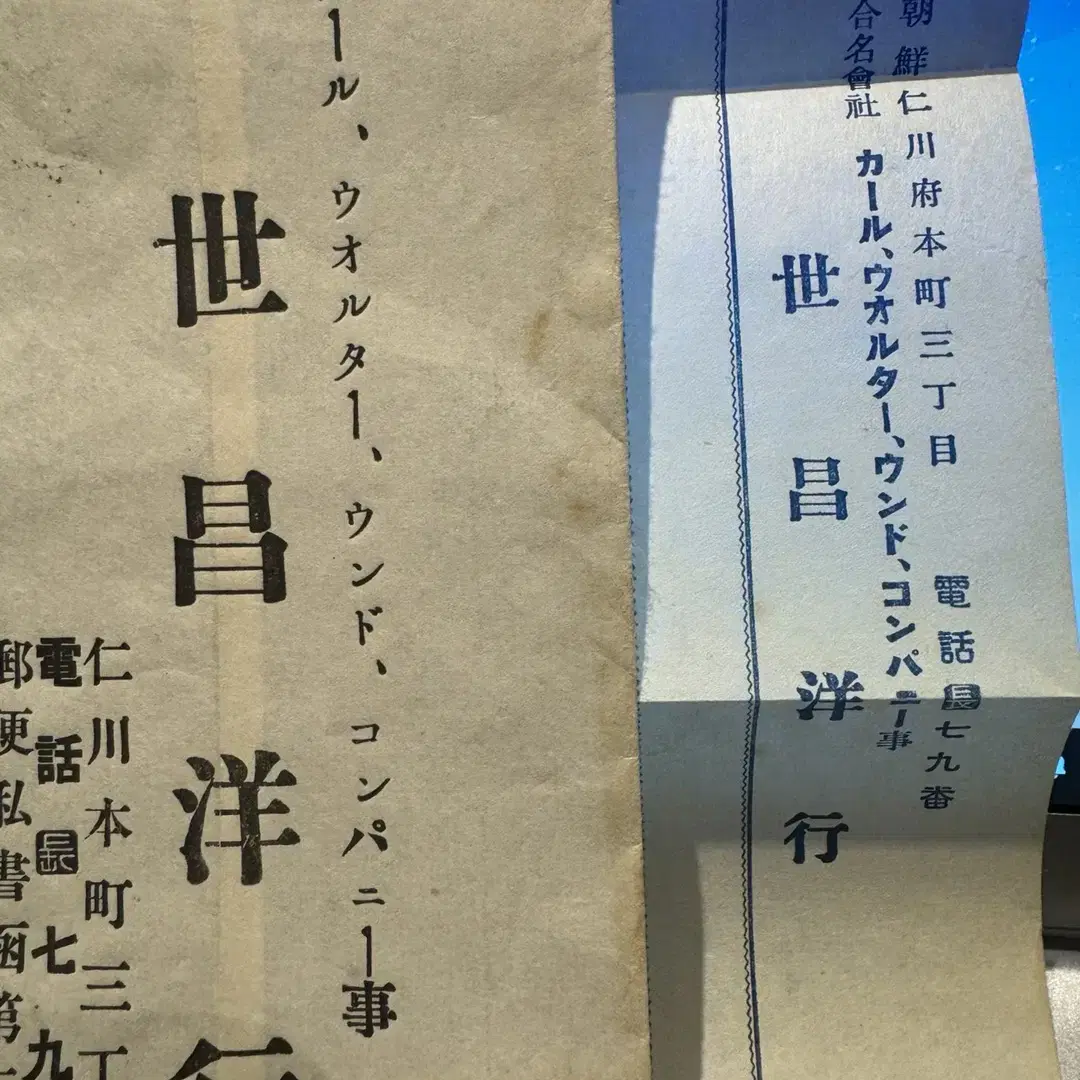 朝鮮仁川府本町三丁目 電話長七九番
合名會社 カール、ウオルター、ウンド、コンパニー事
世昌洋行
ール、ウオルター、ウンド、コンパニー事
世昌洋行
仁川本町三丁
電話長七九
郵便私書函第